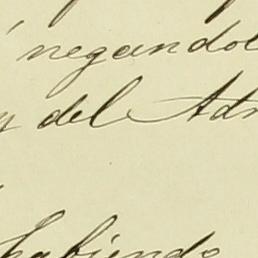 negandol
y del Adm
habiendo